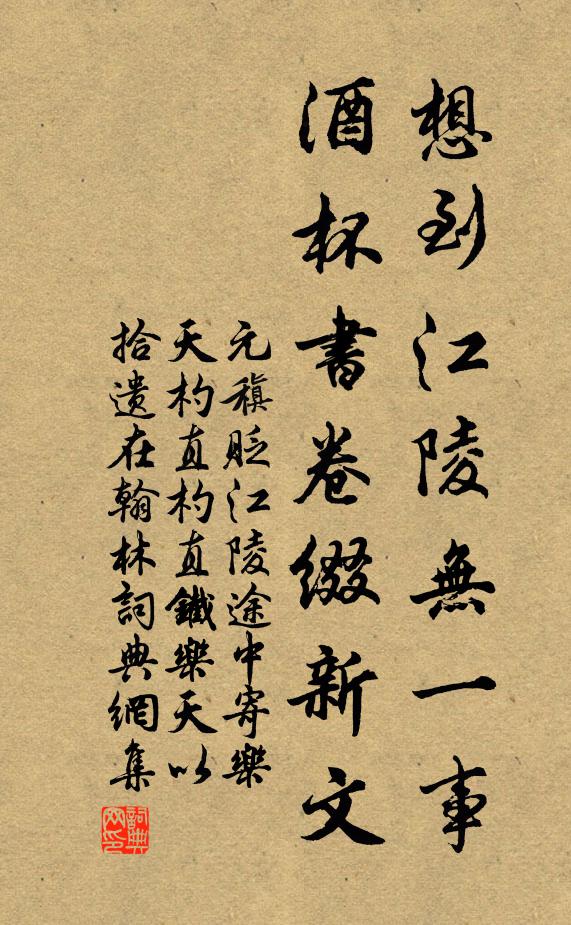 想到江陵無一事
酒杯書卷綴新文
元稹貶江陵途中寄樂
天杓直杓直鐵樂天以
拾遺在翰林詞典網集
詞典
网印